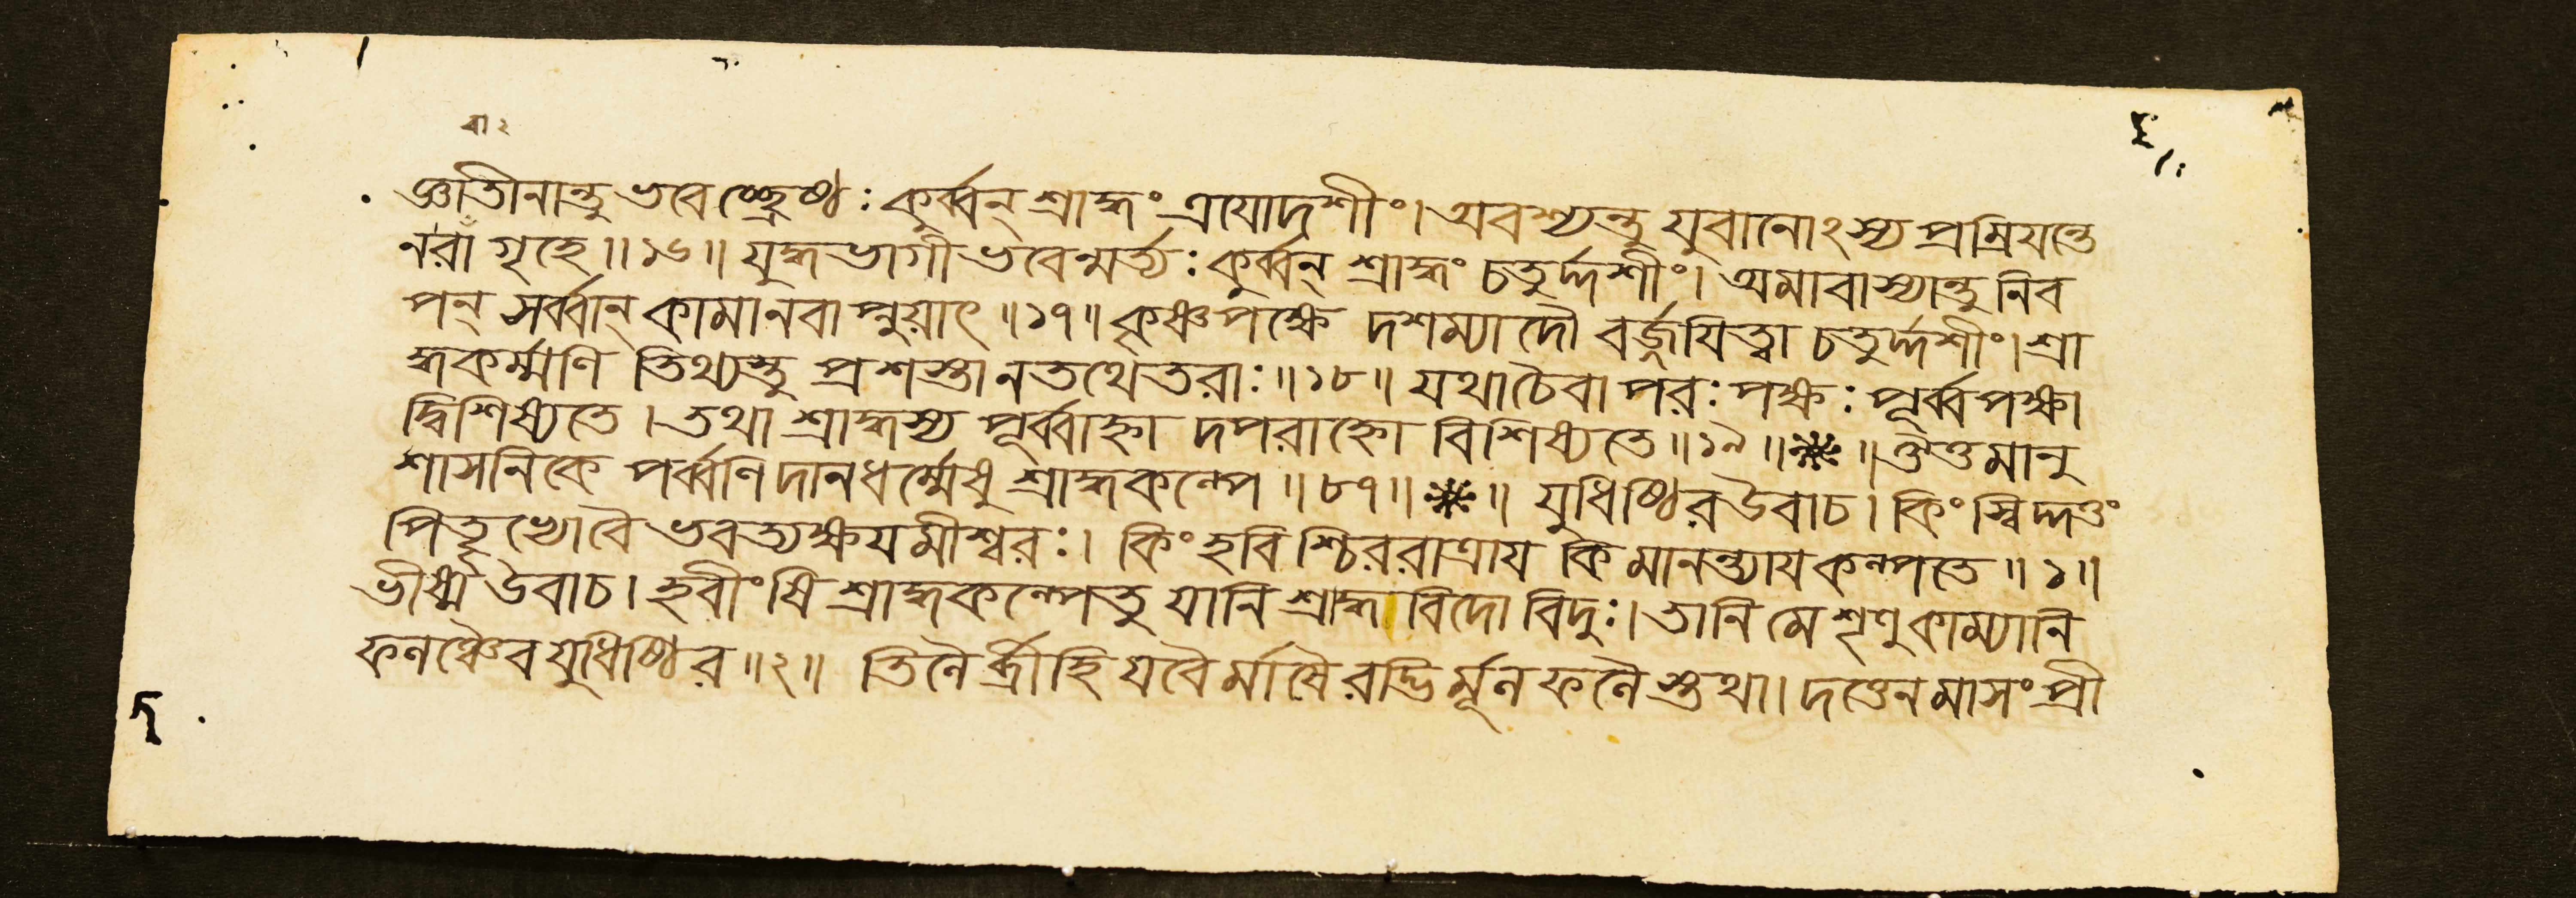 বা২
জ্ঞাতীনান্তু ভবেচ্ছ্রেষ্ঠঃ কুর্ব্বন্ শ্রাদ্ধং ত্রযোদশীং। অবশ্যন্তু যুবানোঽস্য প্রম্রিযন্তে
নরাঁ গৃহে॥১৬॥ যুদ্ধভাগী ভবেন্মর্ত্যঃ কুর্ব্বন্ শ্রাদ্ধং চতুর্দ্দশীং। অমাবাস্যান্তু নিব
পন্ সর্ব্বান্ কামানবাপ্নুয়াৎ॥১৭॥ কৃষ্ণপক্ষে দশম্যাদৌ বর্জ্জযিত্বা চতুর্দ্দশীং। শ্রা
দ্ধকর্ম্মণি তিথ্যস্তু প্রশস্তা ন তথেতরাঃ॥১৮॥ যথা চৈবাপরঃ পক্ষঃ পূর্ব্বপক্ষা
দ্বিশিষ্যতে। তথা শ্রাদ্ধস্য পূর্ব্বাহ্না দপরাহ্নো বিশিষ্যতে॥১৯॥❋॥ ঔত্তমানু
শাসনিকে পর্ব্বণি দানধর্ম্মেষু শ্রাদ্ধকল্পে॥৮৭॥❋॥ যুধিষ্ঠির উবাচ। কিং স্বিদ্দত্তং
পিতৃভ্যো বৈ ভবত্যক্ষযমীশ্বরঃ। কিং হবিশ্চিররাত্রায কিমানন্ত্যায কল্পতে॥১॥
ভীষ্ম উবাচ। হবীংষি শ্রাদ্ধকল্পে তু যানি শ্রাদ্ধবিদো বিদুঃ। তানি মে শৃণু কাম্যানি
ফলঞ্চৈব যুধিষ্ঠির॥২॥ তিলৈর্ব্রীহিযবৈর্মাষৈরদ্ভির্মূলফলৈস্তথা। দত্তেন মাসং প্রী